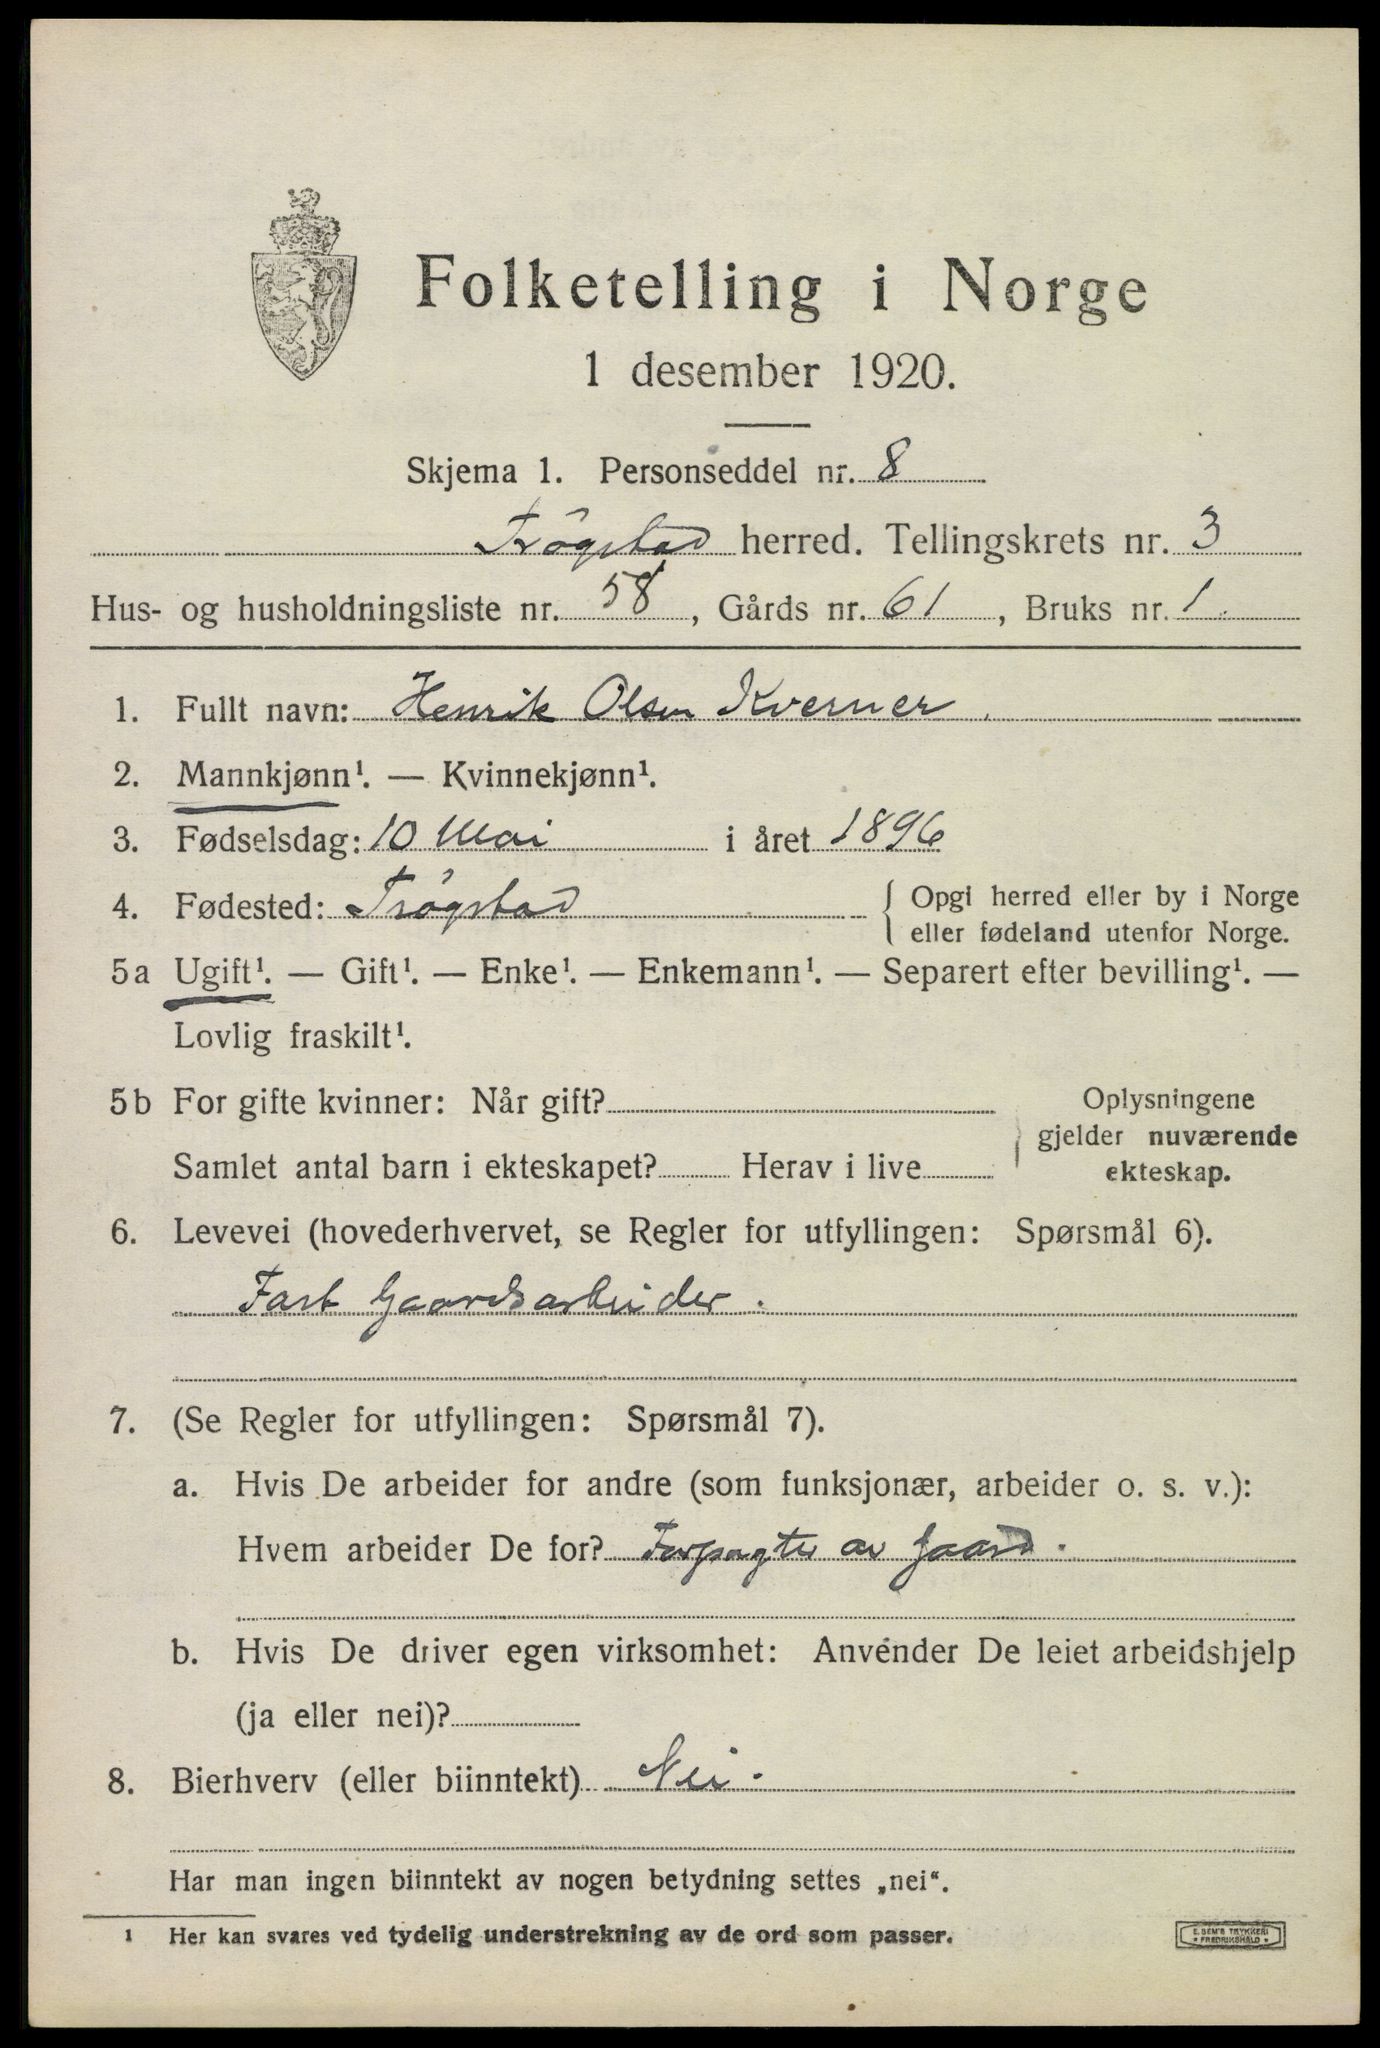 Folketelling i Norge
1 desember 1920.
Skjema 1. Personseddel nr. 8
Trögstad herred. Tellingskrets nr. 3
Hus- og husholdningsliste nr. 58, Gårds nr. 61, Bruks nr. 1.
1. Fullt navn: Henrik Olsen Kverner.
2. Mannkjønn¹. — Kvinnekjønn¹.
3. Fødselsdag: 10 Mai i året 1896
4. Fødested: Trögstad { Opgi herred eller by i Norge
eller fødeland utenfor Norge.
5a Ugift¹. — Gift¹. — Enke¹. — Enkemann¹. — Separert efter bevilling¹. —
Lovlig fraskilt¹.
5b For gifte kvinner: Når gift? Oplysningene
gjelder nuværende
Samlet antal barn i ekteskapet? Herav i live ekteskap.
6. Levevei (hovederhvervet, se Regler for utfyllingen: Spørsmål 6).
Fast Gaardsarbeider.
7. (Se Regler for utfyllingen: Spørsmål 7).
a. Hvis De arbeider for andre (som funksjonær, arbeider o. s. v.):
Hvem arbeider De for? Forpagter av Gaard.
b. Hvis De driver egen virksomhet: Anvender De leiet arbeidshjelp
(ja eller nei)?
8. Bierhverv (eller biinntekt) Nei.
Har man ingen biinntekt av nogen betydning settes „nei".
1 Her kan svares ved tydelig understrekning av de ord som passer.
E. SEM'S TRYKKERI
* FREDRIKSHALD *